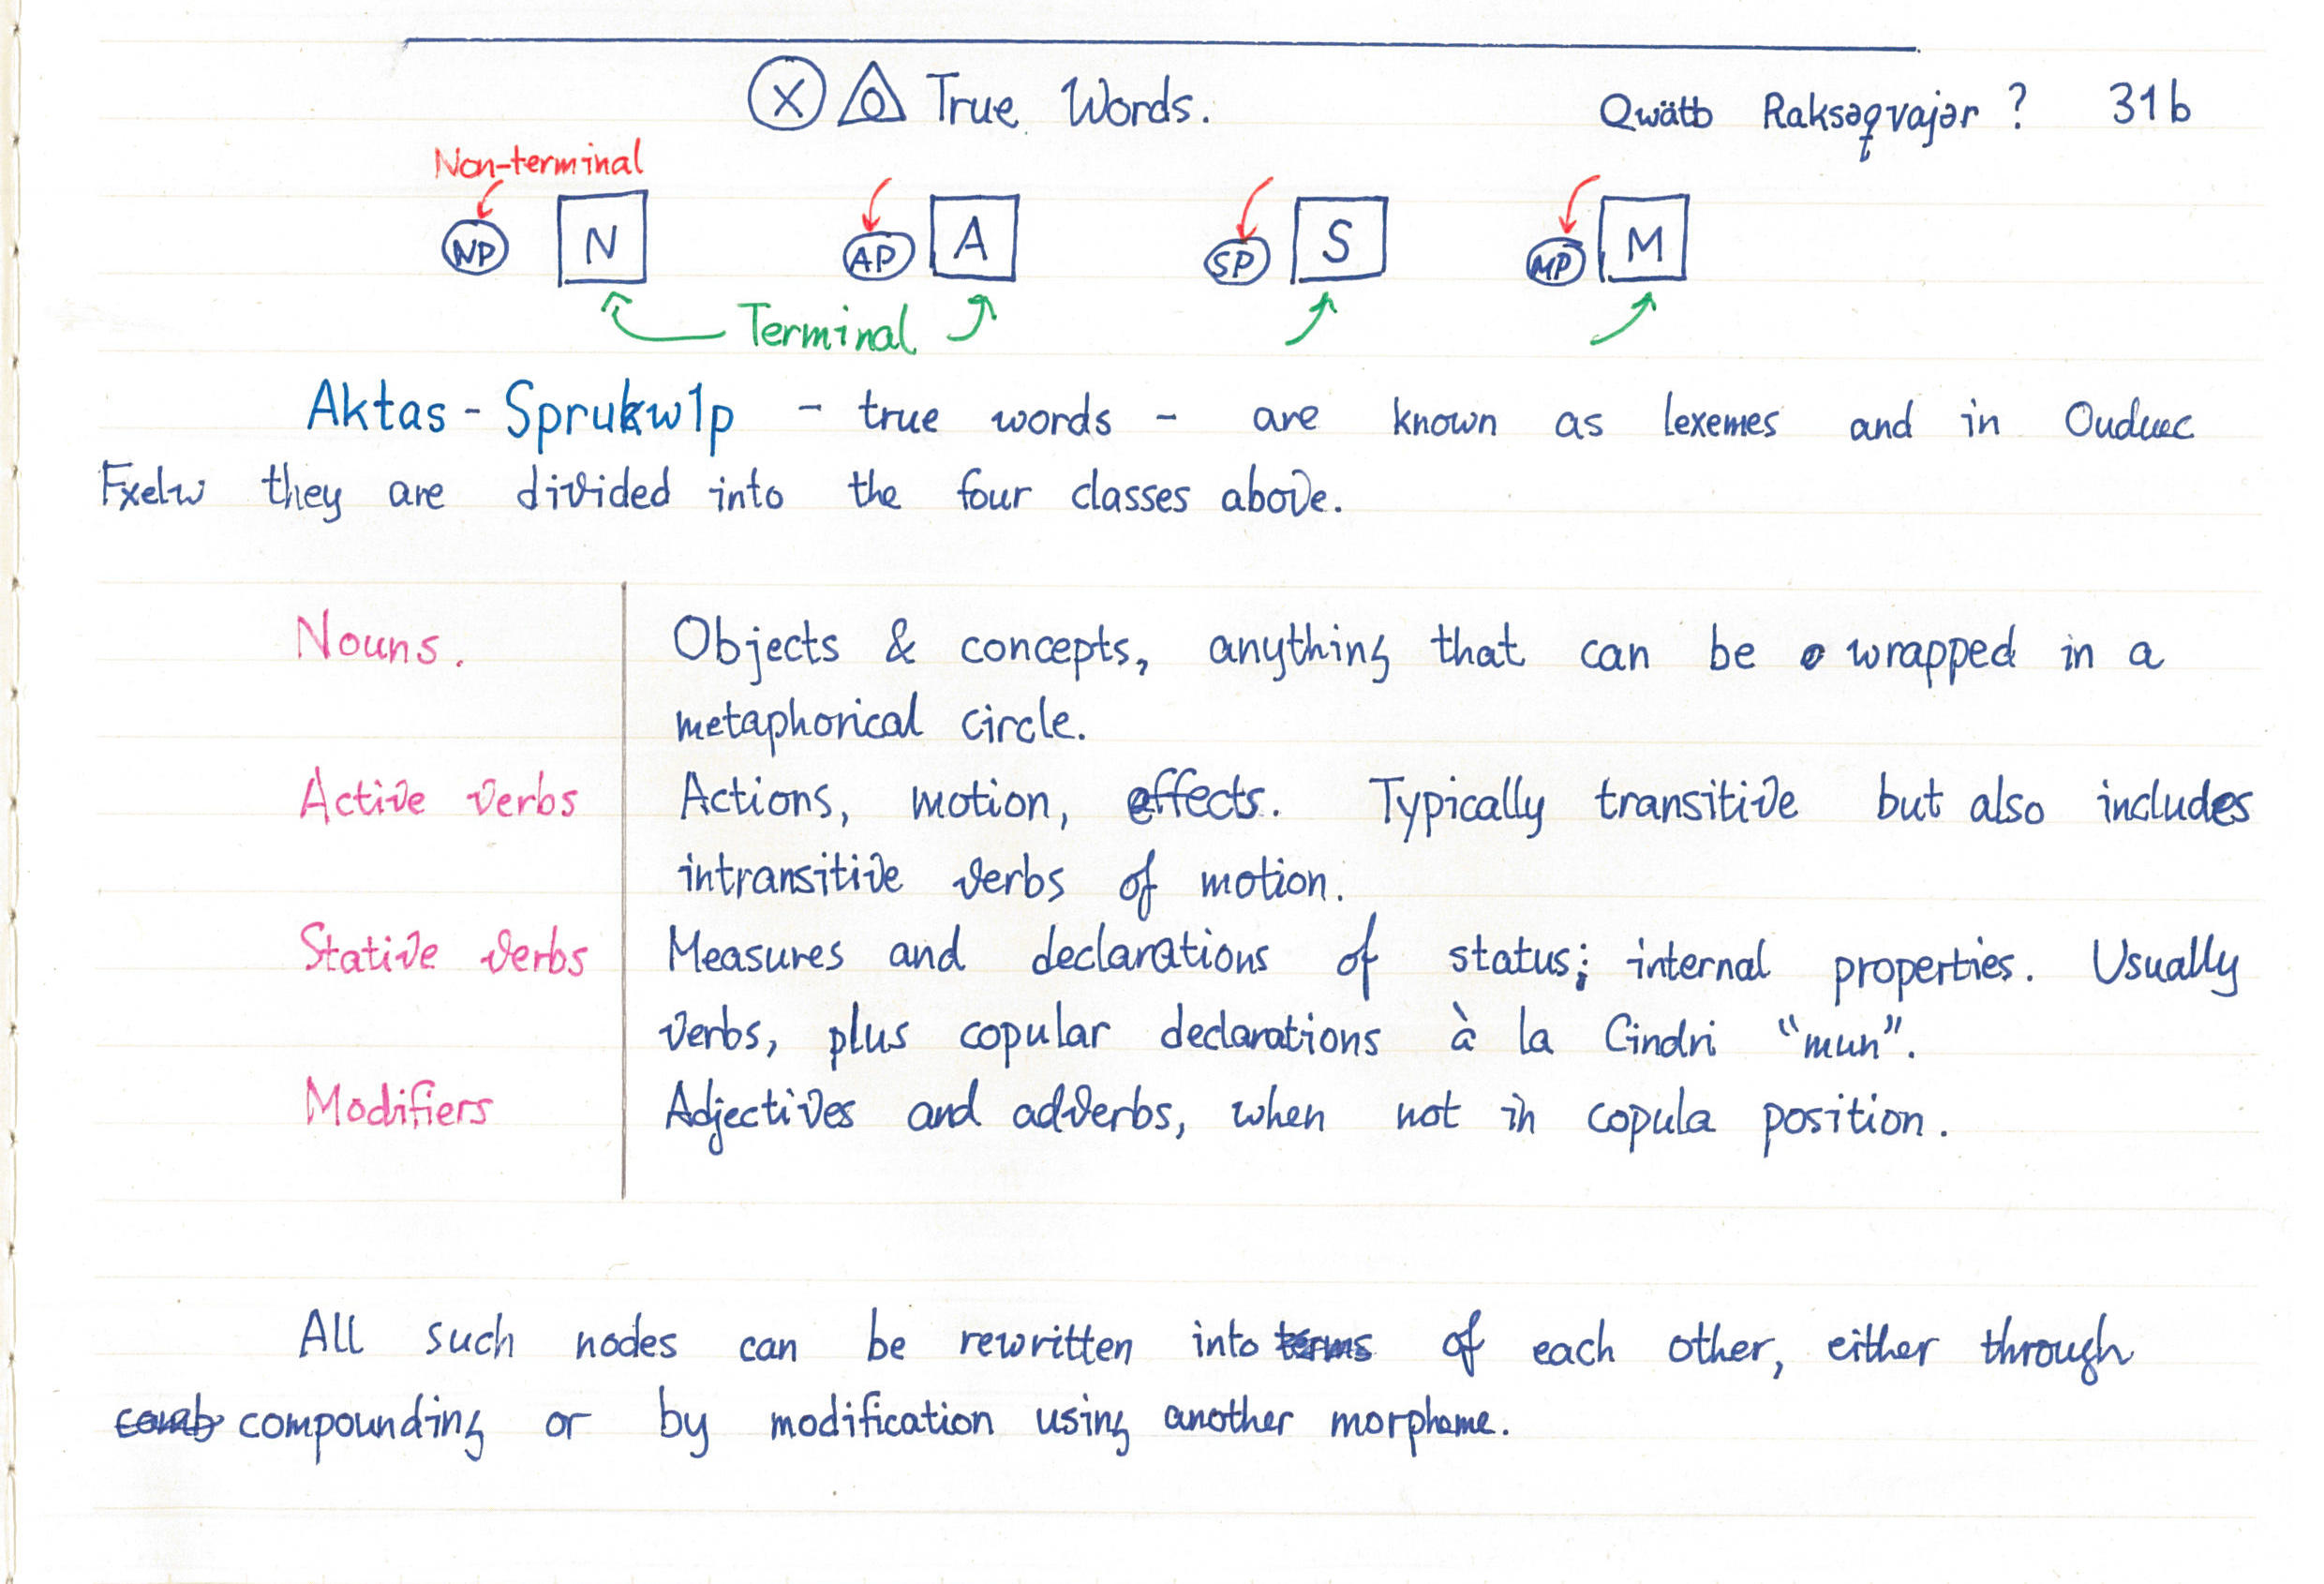 X True Words. Qwätb Raksəqvajər ? 31b
Non-terminal
NP N AP A SP S MP M
Terminal
Aktas - Sprukw1p - true words - are known as lexemes and in
Fxelw they are divided into the four classes above.
Nouns. Objects & concepts, anything that can be wrapped in a
metaphorical circle.
Active verbs Actions, motion, effects. Typically transitive but also includes
intransitive verbs of motion.
Stative verbs Measures and declarations of status; internal properties. Usually
verbs, plus copular declarations à la Cindri "mun".
Modifiers Adjectives and adverbs, when not in copula position.
All such nodes can be rewritten into terms of each other, either through
comb compounding or by modification using another morpheme.